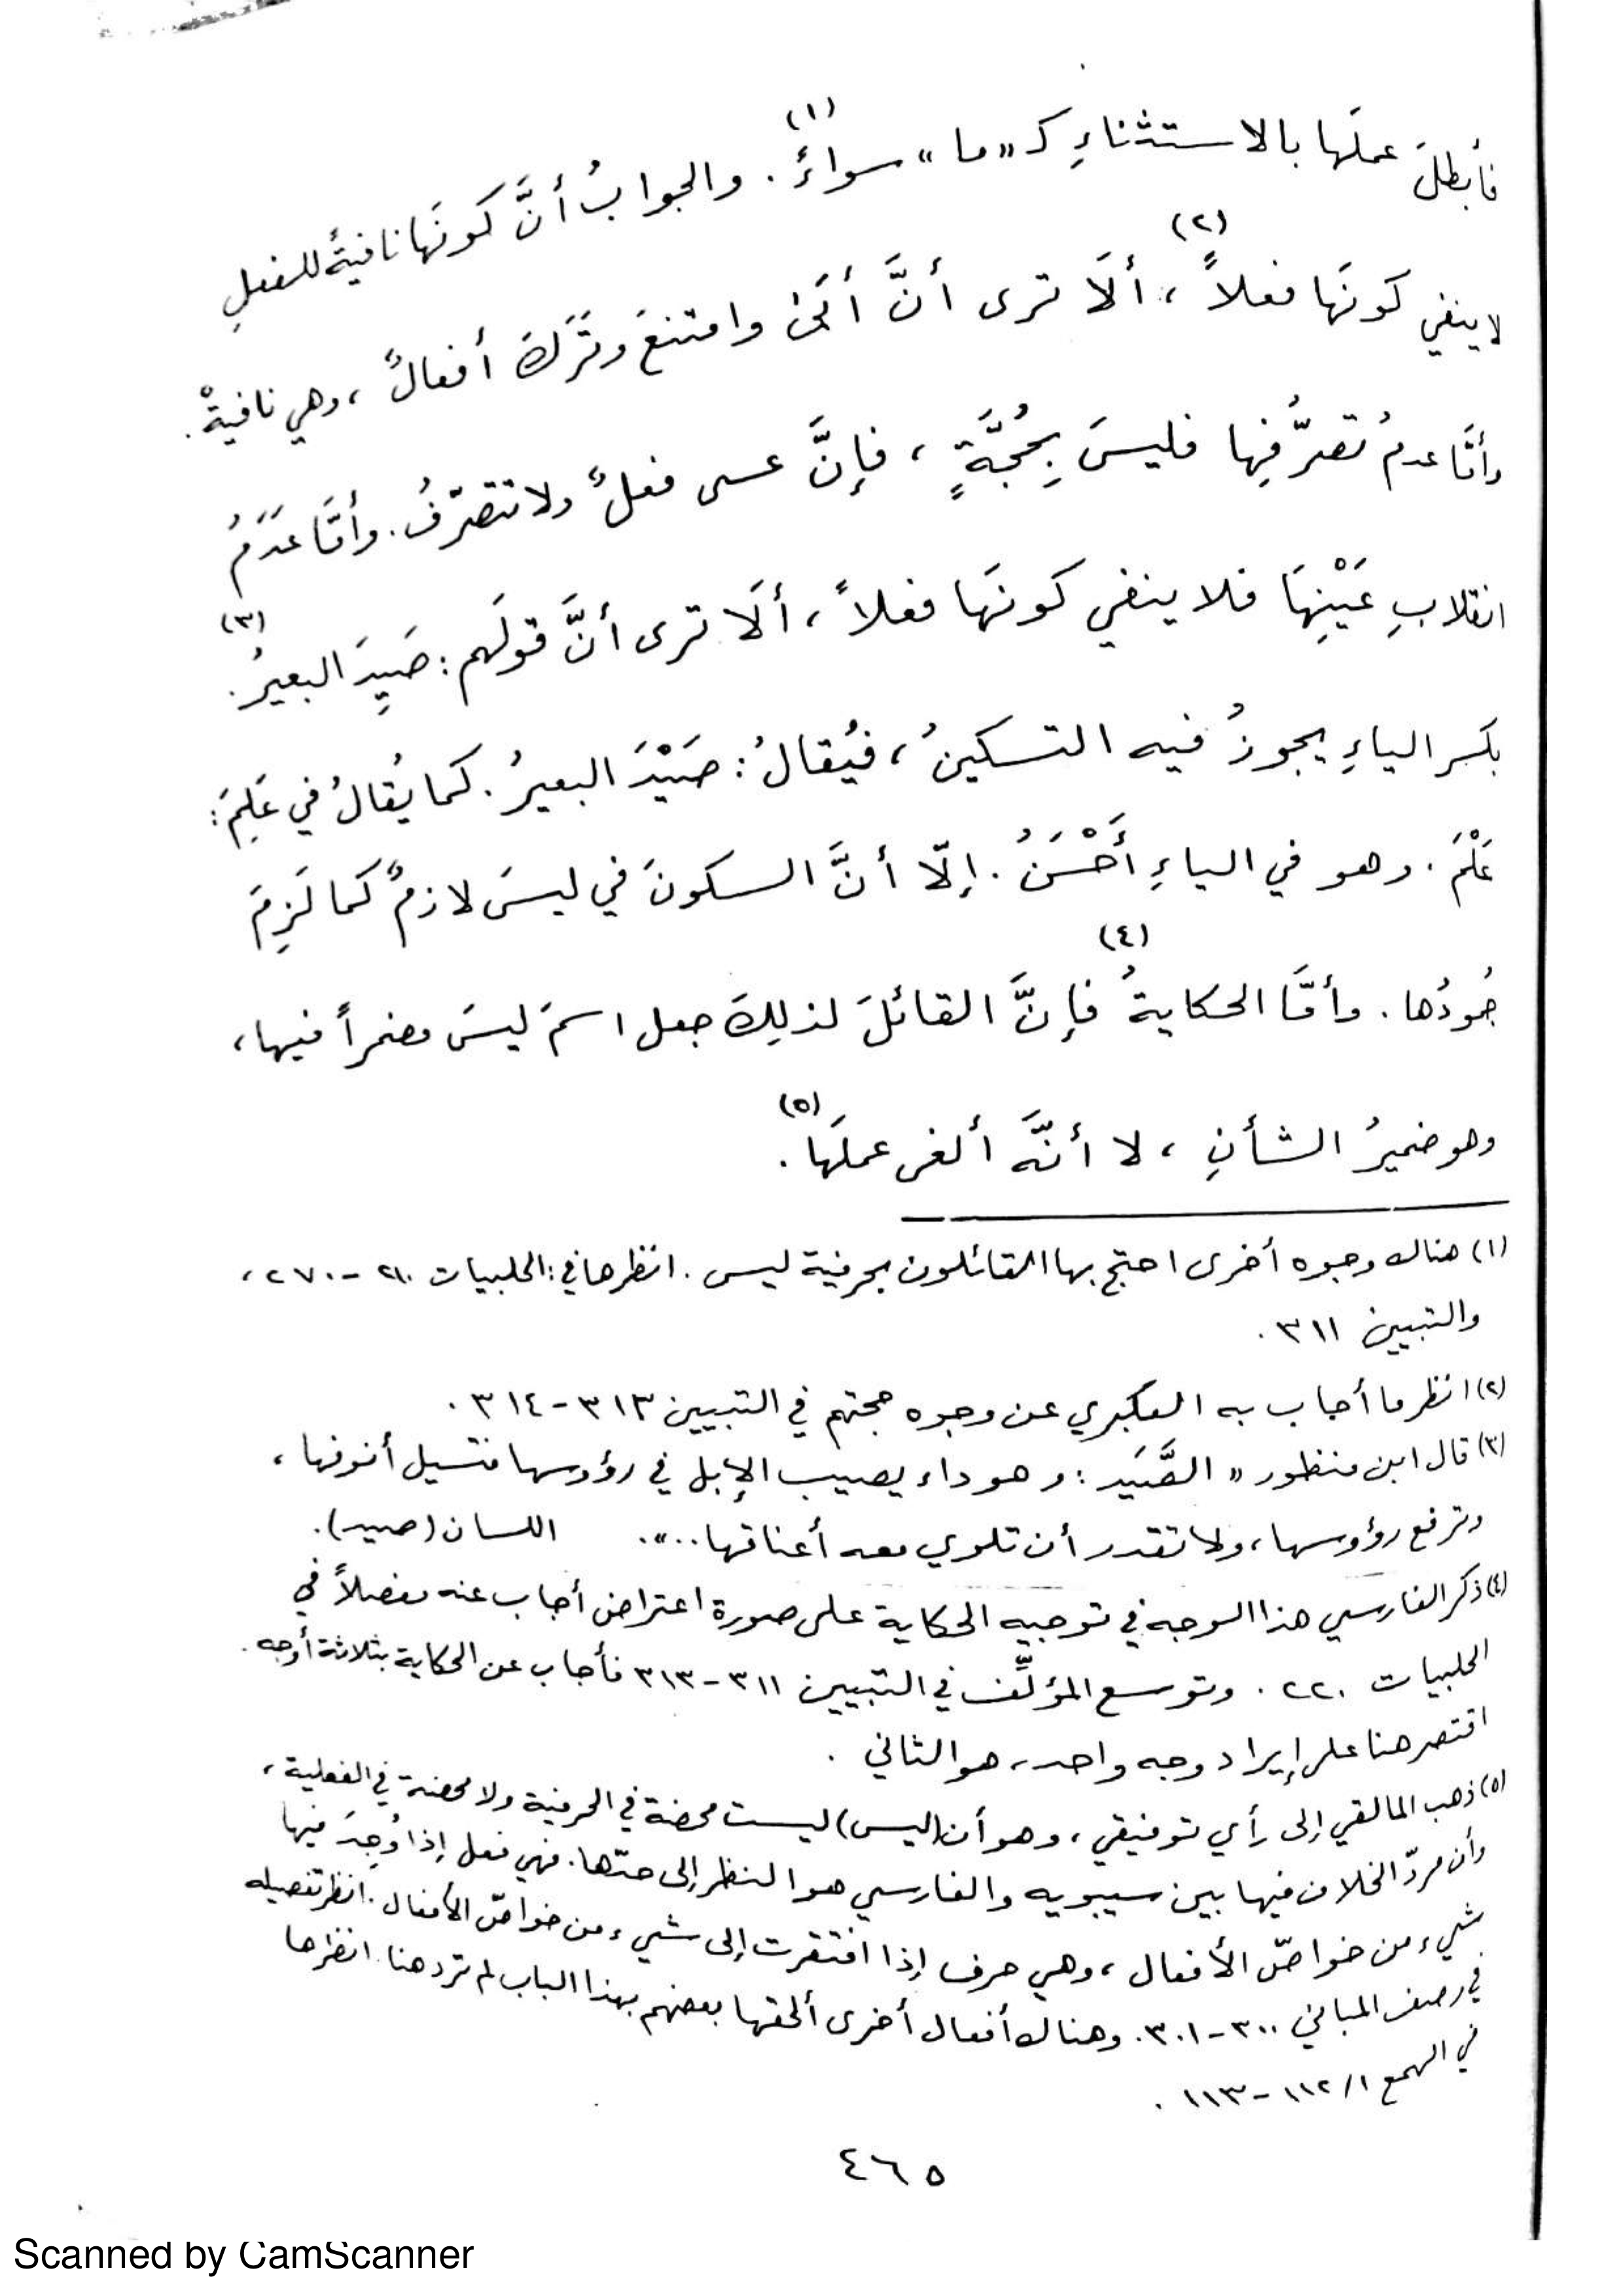 فأبطلَ عملَها بالاستثناءِ كـ «ما» سواءً(١). والجوابُ أنَّ كونَها نافيةً للفعلِ
لا ينفي كونَها فعلاً(٢)، ألَا ترى أنَّ أَبَى وامتنعَ وتَرَكَ أفعالٌ، وهي نافيةٌ.
وأمَّا عدمُ تصرُّفِها فليسَ بِحُجَّةٍ، فإنَّ عسى فعلٌ ولا تتصرّفُ. وأمَّا عَدَمُ
انقلابِ عَيْنِهَا فلا ينفي كونَها فعلاً، ألَا ترى أنَّ قولَهم: صَيِدَ البعيرُ(٣).
بكسر الياءِ يجوزُ فيه التسكينُ، فيُقالُ: صَيْدَ البعيرُ. كما يُقالُ في عَلِمَ:
عَلْمَ. وهو في الياءِ أَحْسَنُ. إلّا أنَّ السكونَ في ليسَ لازمٌ كما لَزِمَ
جُمودُها. وأمَّا الحكايةُ(٤) فإنَّ القائلَ لذلِكَ جعل اسمَ ليسَ مضمراً فيها،
وهو ضميرُ الشأنِ، لا أنَّه ألغى عملَها(٥).
(١) هناك وجوه أخرى احتج بها القائلون بحرفية ليس. انظرها في: الحلبيات ٢١٠-٢٧٠،
والتبيين ٣١١.
(٢) انظر ما أجاب به العكبري عن وجوه حجتهم في التبيين ٣١٣-٣١٤.
(٣) قال ابن منظور «الصَّيَد: وهو داء يصيب الإبل في رؤوسها فتسيل أنوفها،
وترفع رؤوسها، ولا تقدر أن تلوي معه أعناقها...». اللسان (صيد).
(٤) ذكر الفارسي هذا الوجه في توجيه الحكاية على صورة اعتراض أجاب عنه مفصلاً في
الحلبيات ٢٢٠. وتوسع المؤلِّف في التبيين ٣١١-٣١٣ فأجاب عن الحكاية بثلاثة أوجه.
اقتصر هنا على إيراد وجه واحد، هو الثاني.
(٥) ذهب المالقي إلى رأي توفيقي، وهو أن (ليس) ليست محضة في الحرفية ولا محضة في الفعلية،
وأن مردّ الخلاف فيها بين سيبويه والفارسي هو النظر إلى حدّها. فهي فعل إذا وُجِدَ فيها
شيء من خواصّ الأفعال، وهي حرف إذا افتقرت إلى شيء من خواصّ الأفعال. انظر تفصيله
في رصف المباني ٣٠٠-٣٠١. وهناك أفعال أخرى ألحقها بعضهم بهذا الباب لم ترد هنا. انظرها
في الهمع ١/١١٢-١١٣.
٤٦٥
Scanned by CamScanner